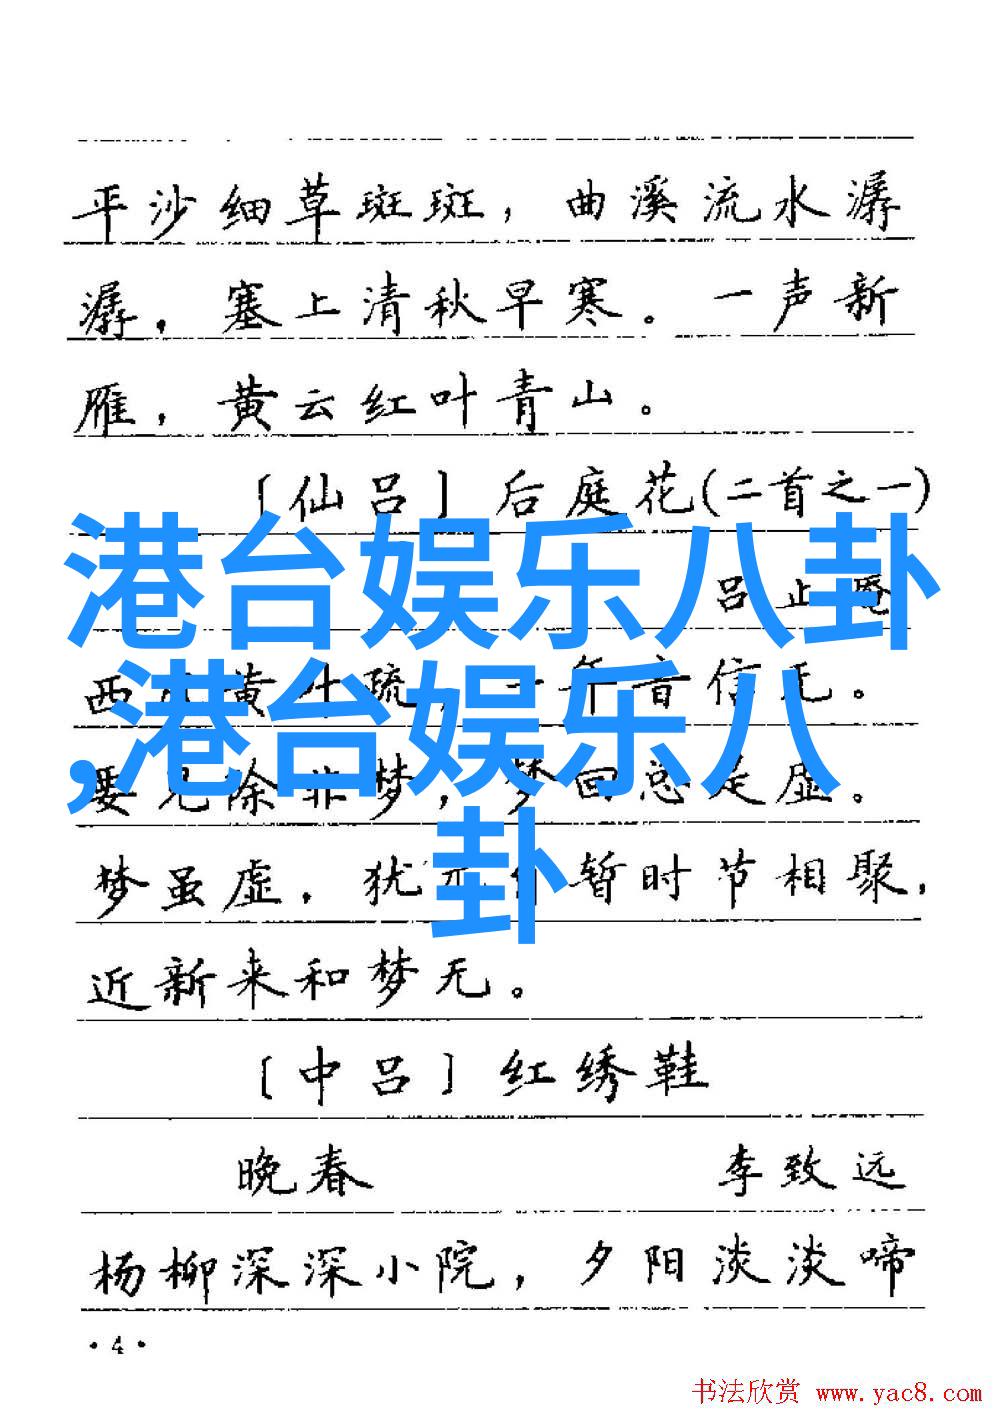 平沙细草斑斑，曲溪流水潺
潺，塞上清秋早寒。一声新
雁，黄云红叶青山。
〔仙吕〕后庭花(二首之一)
港台娱乐八卦
吕止庵
,港台娱乐八
西 黄叶疏，一年音信无。
要见除非梦，梦回总是虚。
卦
梦虽虚，犹 暂时节相聚，
近新来和梦无。
〔中吕〕红绣鞋
晚春 李致远
杨柳深深小院，夕阳淡淡啼
·4·
书法欣赏 www.yac8.com